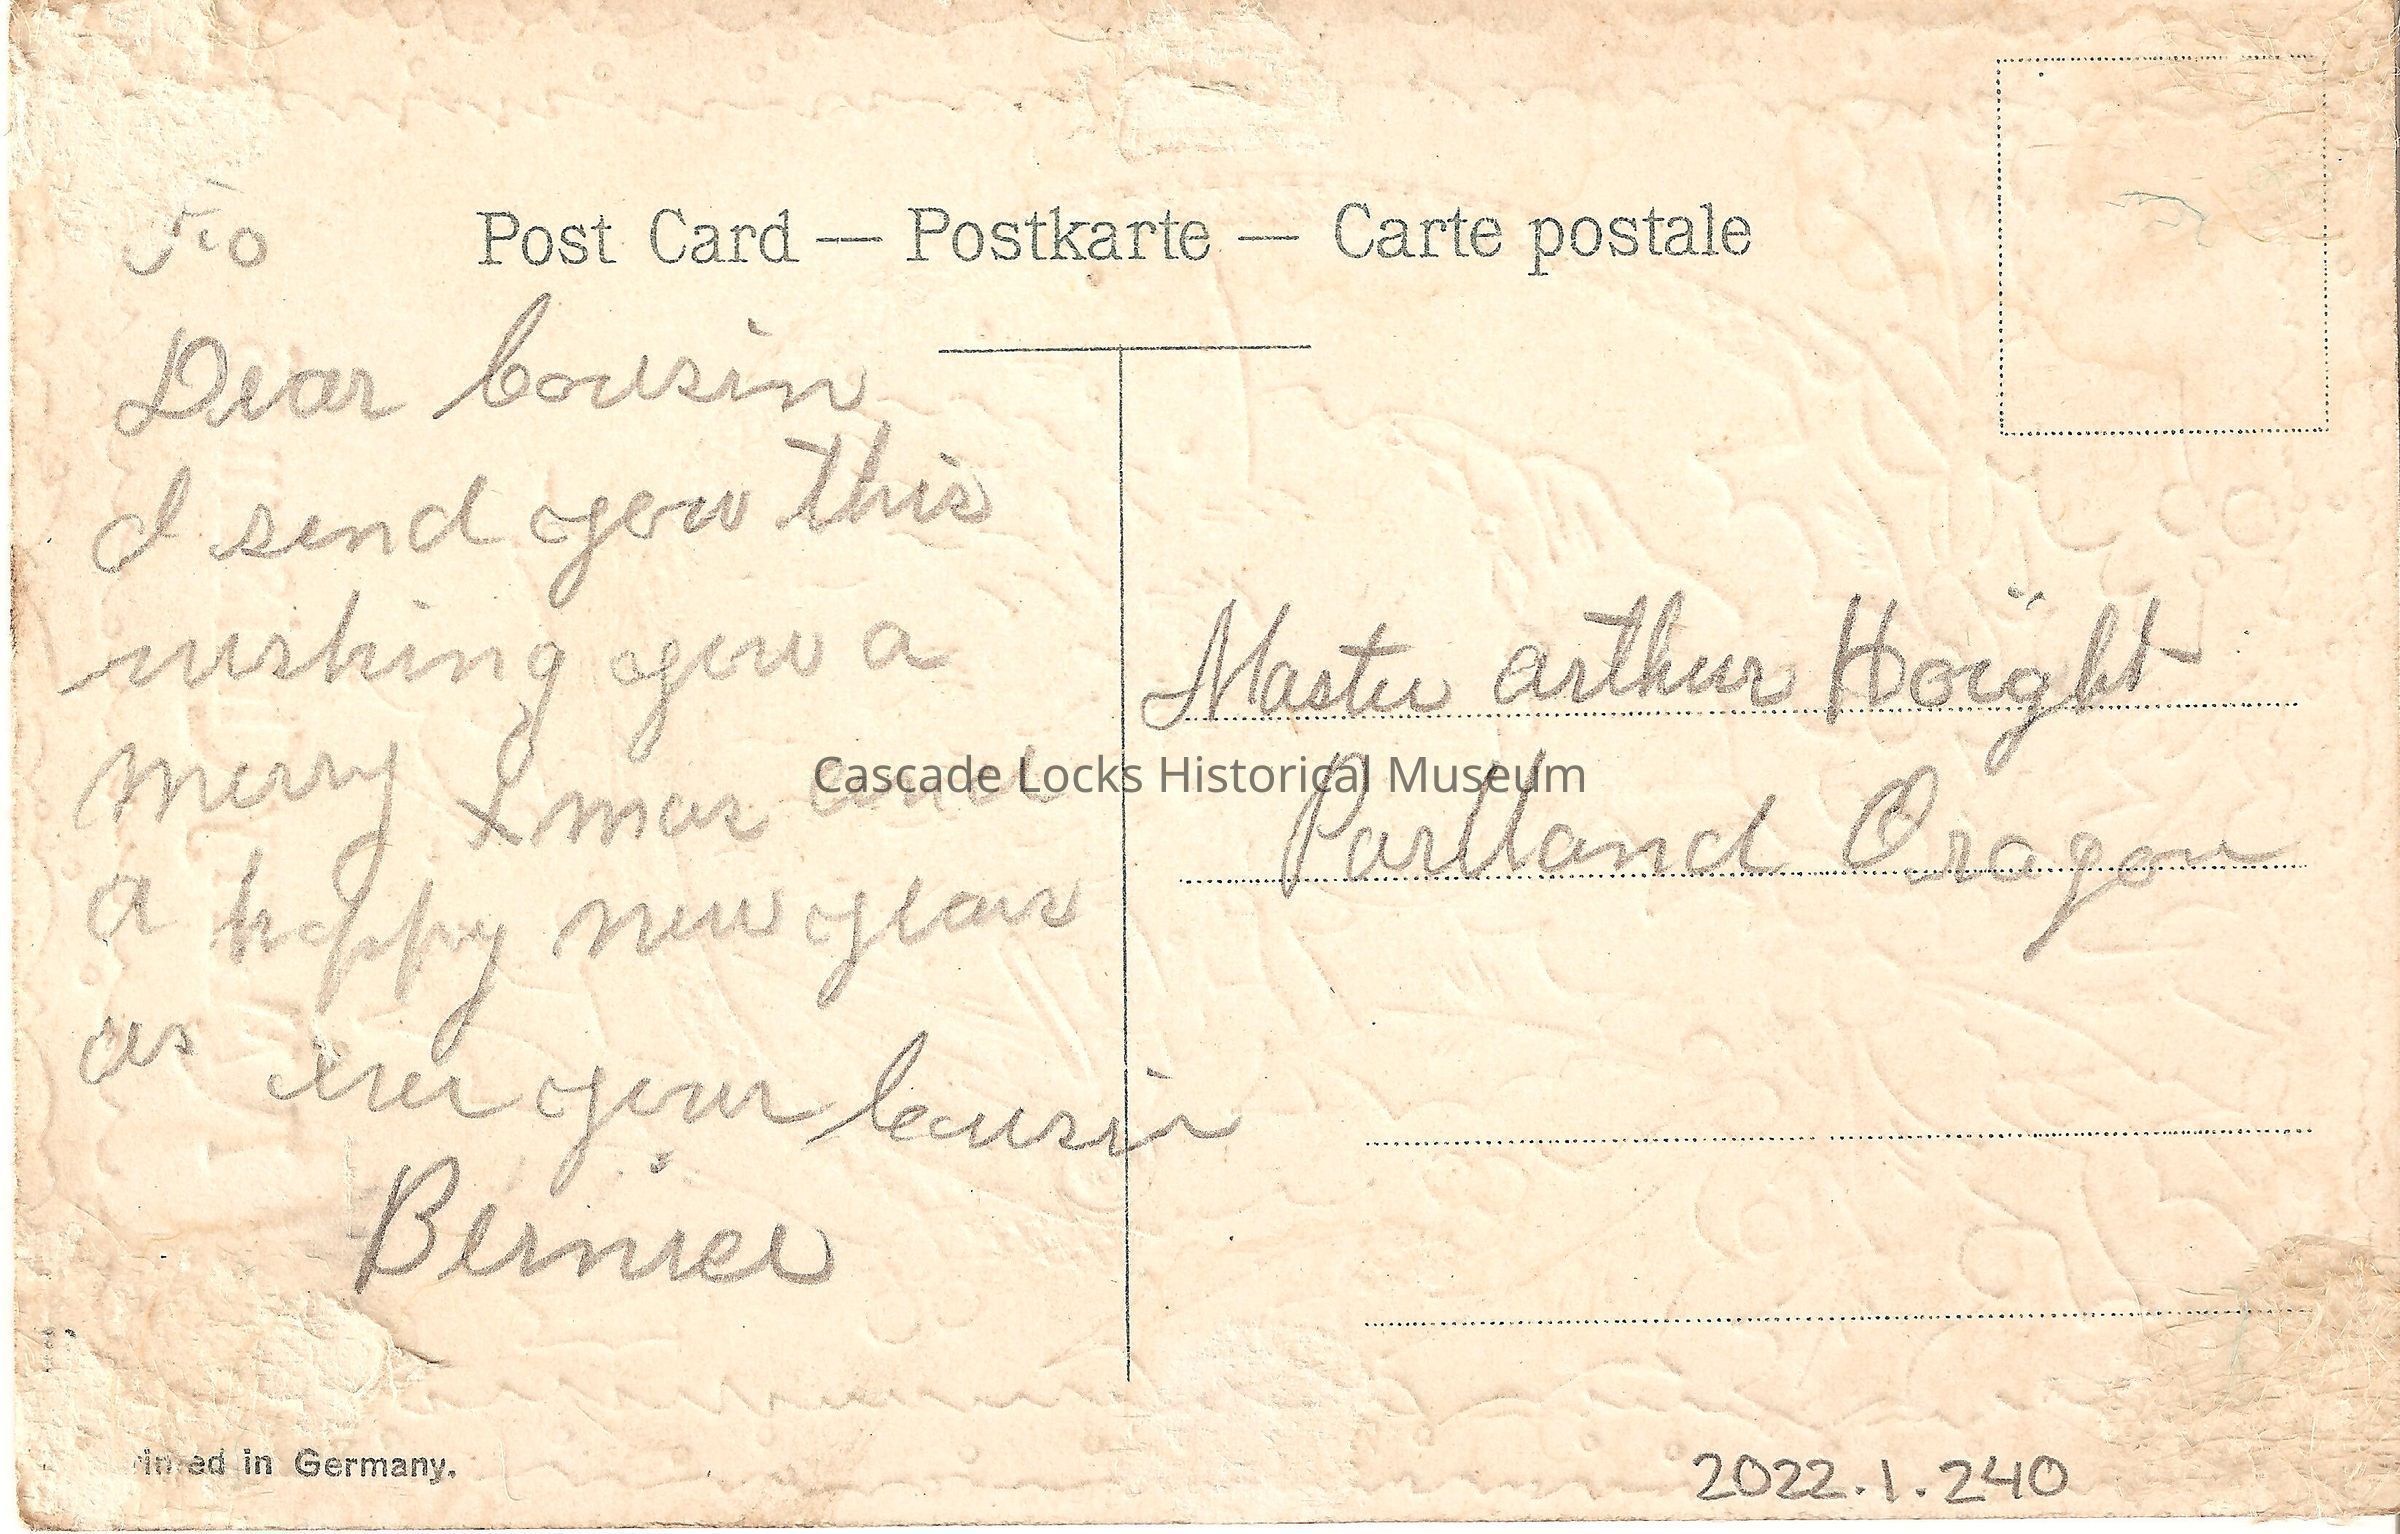 Post Card — Postkarte — Carte postale
To
Dear Cousin
I send you this
wishing you a
merry Xmas and
a happy new year
as ever your Cousin
Bernice
Master arthur Hoight
Portland Oragon
Cascade Locks Historical Museum
in ed in Germany.
2022.1.240